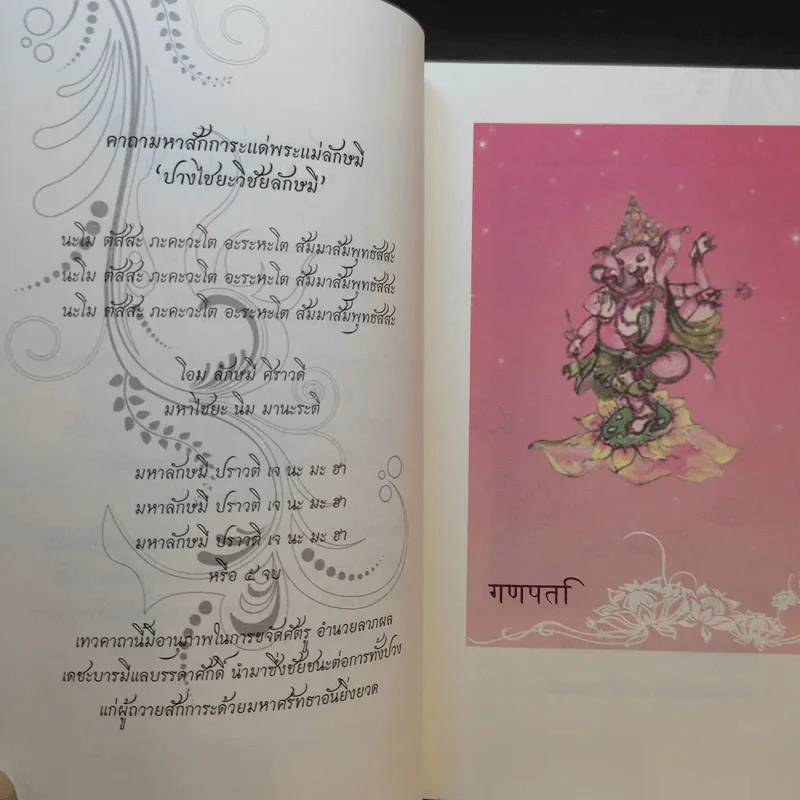 คาถามหาสักการะแด่พระแม่ลักษมี
‘ปางไชยะวิชัยลักษมี’
นะโม ตัสสะ ภะคะวะโต อะระหะโต สัมมาสัมพุทธัสสะ
นะโม ตัสสะ ภะคะวะโต อะระหะโต สัมมาสัมพุทธัสสะ
นะโม ตัสสะ ภะคะวะโต อะระหะโต สัมมาสัมพุทธัสสะ
โอม ลักษมี ศิราวดี
มหาไชยะ นิม มานะระติ
มหาลักษมี ปราวติ เจ นะ มะ ฮา
มหาลักษมี ปราวติ เจ นะ มะ ฮา
มหาลักษมี ปราวติ เจ นะ มะ ฮา
หรือ ๕ จบ
เทวคาถานี้มีอานุภาพในการขจัดศัตรู อำนวยลาภผล
เดชะบารมีแลบรรดาศักดิ์ นำมาซึ่งชัยชนะต่อการทั้งปวง
แก่ผู้ถวายสักการะด้วยมหาศรัทธาอันยิ่งยวด
गणपर्ता